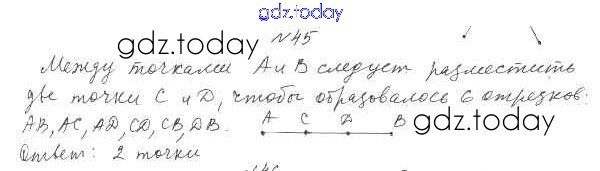 gdz.today
№45
gdz.today
Между точками A и B следует разместить
две точки C и D, чтобы образовалось 6 отрезков:
AB, AC, AD, CD, CB, DB.
A C D B
gdz.today
Ответ: 2 точки
№46